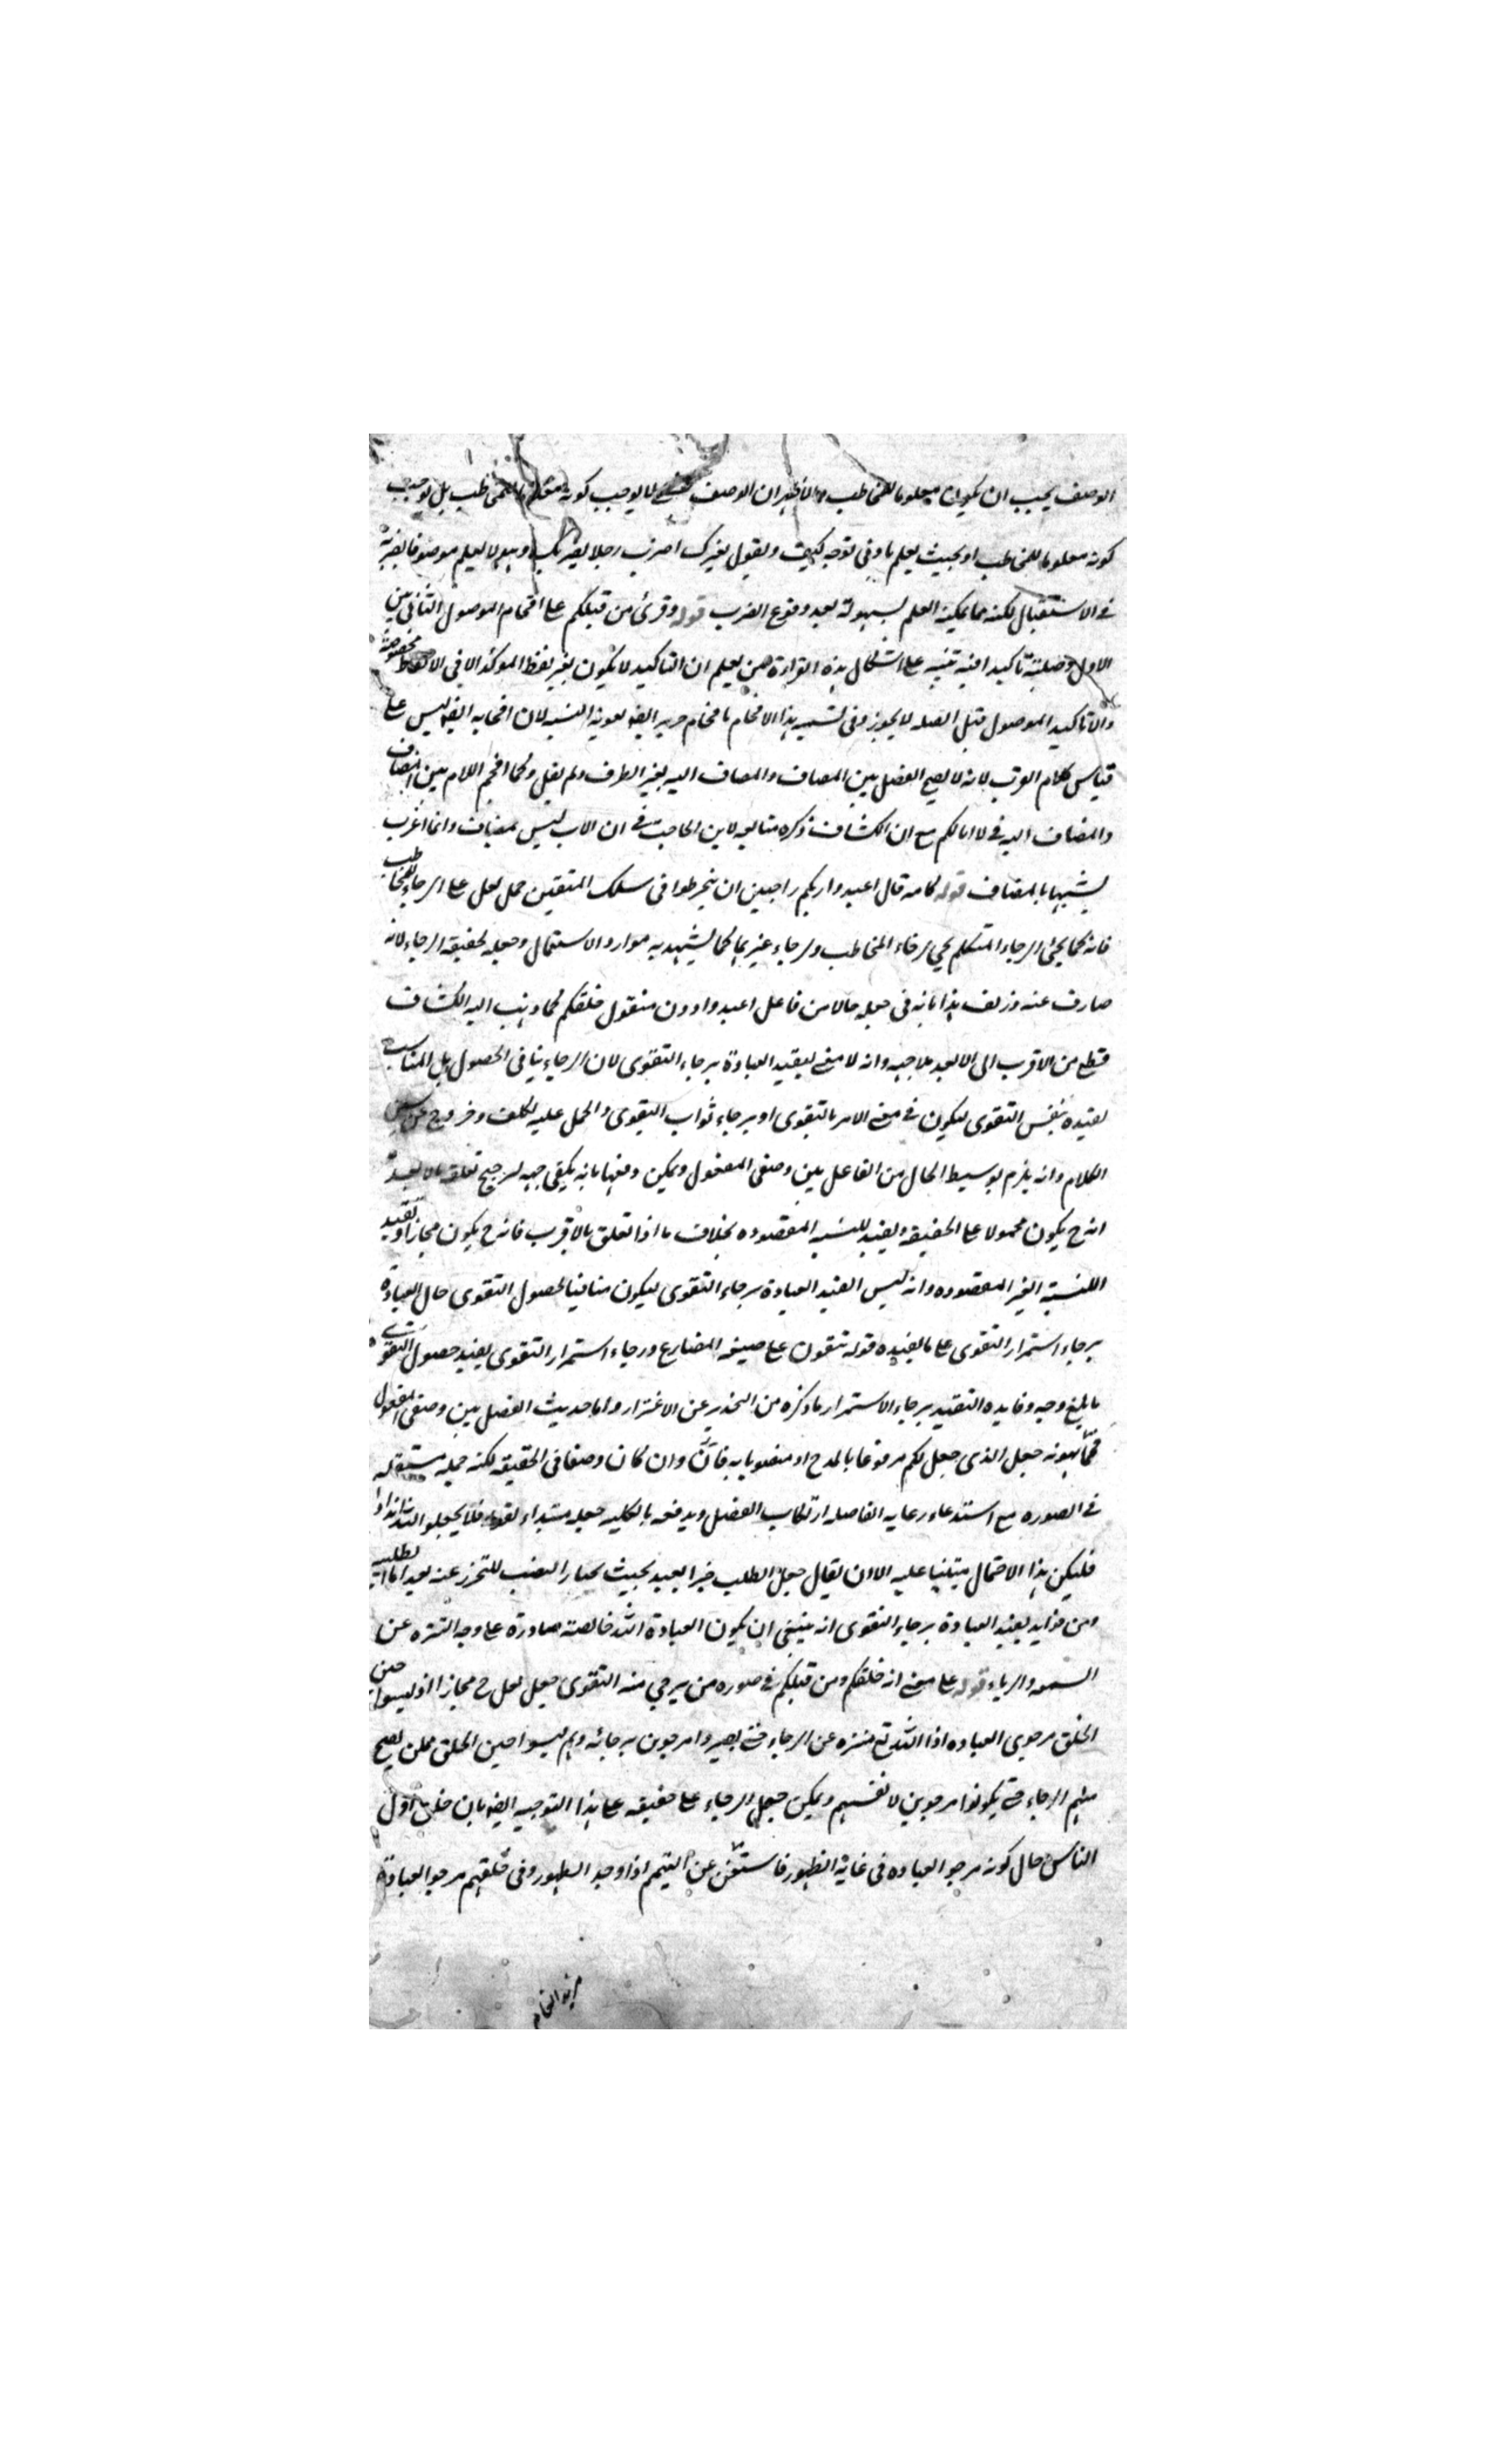 الوصف يجب ان يكون معلوما للمخاطب والاظهر ان الوصف لا يوجب كونه معلوما للمخاطب بل يوجب
كونه معلوما للمخاطب او بحيث يعلم بادنى توجه كيف وتقول لغيرك اضرب رجلا يضربك وهو لا يعلم موصوفا بضربه
في الاستقبال لكنه مما يمكنه العلم بسهولة بعد وقوع الضرب قوله وقرئ من قبلكم على اقحام الموصول الثاني بين
الاول وصلته تاكيدا فيه تنبيه على اشكال هذه القراءة حين يعلم ان التاكيد لا يكون بغير لفظ الموكد الا في الفاظ مخصوصة
والا تاكيد الموصول قبل الصلة لا يجوز وفي تشبيه هذا الاقحام باقحام جرير ايضا لان اقحامه ايضا ليس على
قياس كلام العرب لانه لا يصح الفصل بين المضاف والمضاف اليه بغير الظرف ولم يقل وكما اقحم اللام بين المضاف
والمضاف اليه في لا ابا لكم مع ان الكشاف ذكره متابعة لابن الحاجب في ان الاب ليس بمضاف وانما اعرب
تشبيها بالمضاف قوله كانه قال اعبدوا ربكم راجين ان تنخرطوا في سلك المتقين حمل لعل على الرجاء للمخاطب
فانه كما يجئ لرجاء المتكلم يجئ لرجاء المخاطب ولرجاء غيرهما كما يشهد به موارد الاستعمال وجعله لحقيقة الرجاء لانه
صارف عنه وزيف هذا بانه في جعله حالا من فاعل اعبدوا دون مفعول خلقكم كما ذهب اليه الكشاف
قطع من الاقرب الى الابعد بلا جهة وانه لا معنى لتقييد العبادة برجاء التقوى لان الرجاء ينافي الحصول بل المناسب
تقييده بنفس التقوى ليكون في معنى الامر بالتقوى او برجاء ثواب التقوى والحمل عليه تكلف وخروج عن سنن
الكلام وانه يلزم توسيط الحال من الفاعل بين وصفي المفعول ويمكن دفعها بانه يكفي جهة لترجيح تعلقه بالابعد
انه ح يكون محمولا على الحقيقة وتقييد للنسبة المقصوده بخلاف ما اذا تعلق بالاقرب فانه ح يكون مجازا وتقييد
للنسبة الغير المقصوده وانه ليس القيد العبادة برجاء التقوى ليكون منافيا لحصول التقوى حال العبادة
برجاء استمرار التقوى على ما يفيده قوله تتقون على صيغة المضارع ورجاء استمرار التقوى يفيد حصول التقوى
بابلغ وجه وفايده التقييد برجاء الاستمرار ما ذكره من التحذير عن الاغترار واما حديث الفصل بين وصفي المفعول
فمما يهونه جعل الذي جعل لكم مرفوعا بالمدح او منصوبا به فانه وان كان وصفا في الحقيقة لكنه جملة مستقلة
في الصوره مع استدعاء رعاية الفاصلة ارتكاب الفصل ويدفعه بالكلية جعله مبتداء لقوله فلا تجعلوا لله اندادا
فليكن هذا الاحتمال مبتنيا عليه الا ان يقال جعل الطلب خبرا بعيد بحيث يختار النصب للتحرز عنه بعد اما
ومن فوايد تقييد العبادة برجاء التقوى انه ينبغي ان يكون العبادة لله خالصة صادرة على وجه التنزه عن
السمعة والرياء قوله على معنى انه خلقكم ومن قبلكم في صورة من يرجى منه التقوى جعل لعل ح مجازا اذ ليسوا حين
الخلق مرجوي العباده اذا الله تع منزه عن الرجاء حتى يصيروا مرجوين برجائه وهم ليسوا حين الخلق ممن يصح
منهم الرجاء حتى يكونوا مرجوين لانفسهم ويمكن جعل الرجاء على حقيقته على هذا التوجيه ايضا بان خلق اول
الناس حال كونه مرجو العباده في غاية الظهور فاستغن عن التيمم اذا وجد الطهور وفي خلقهم مرجو العبادة